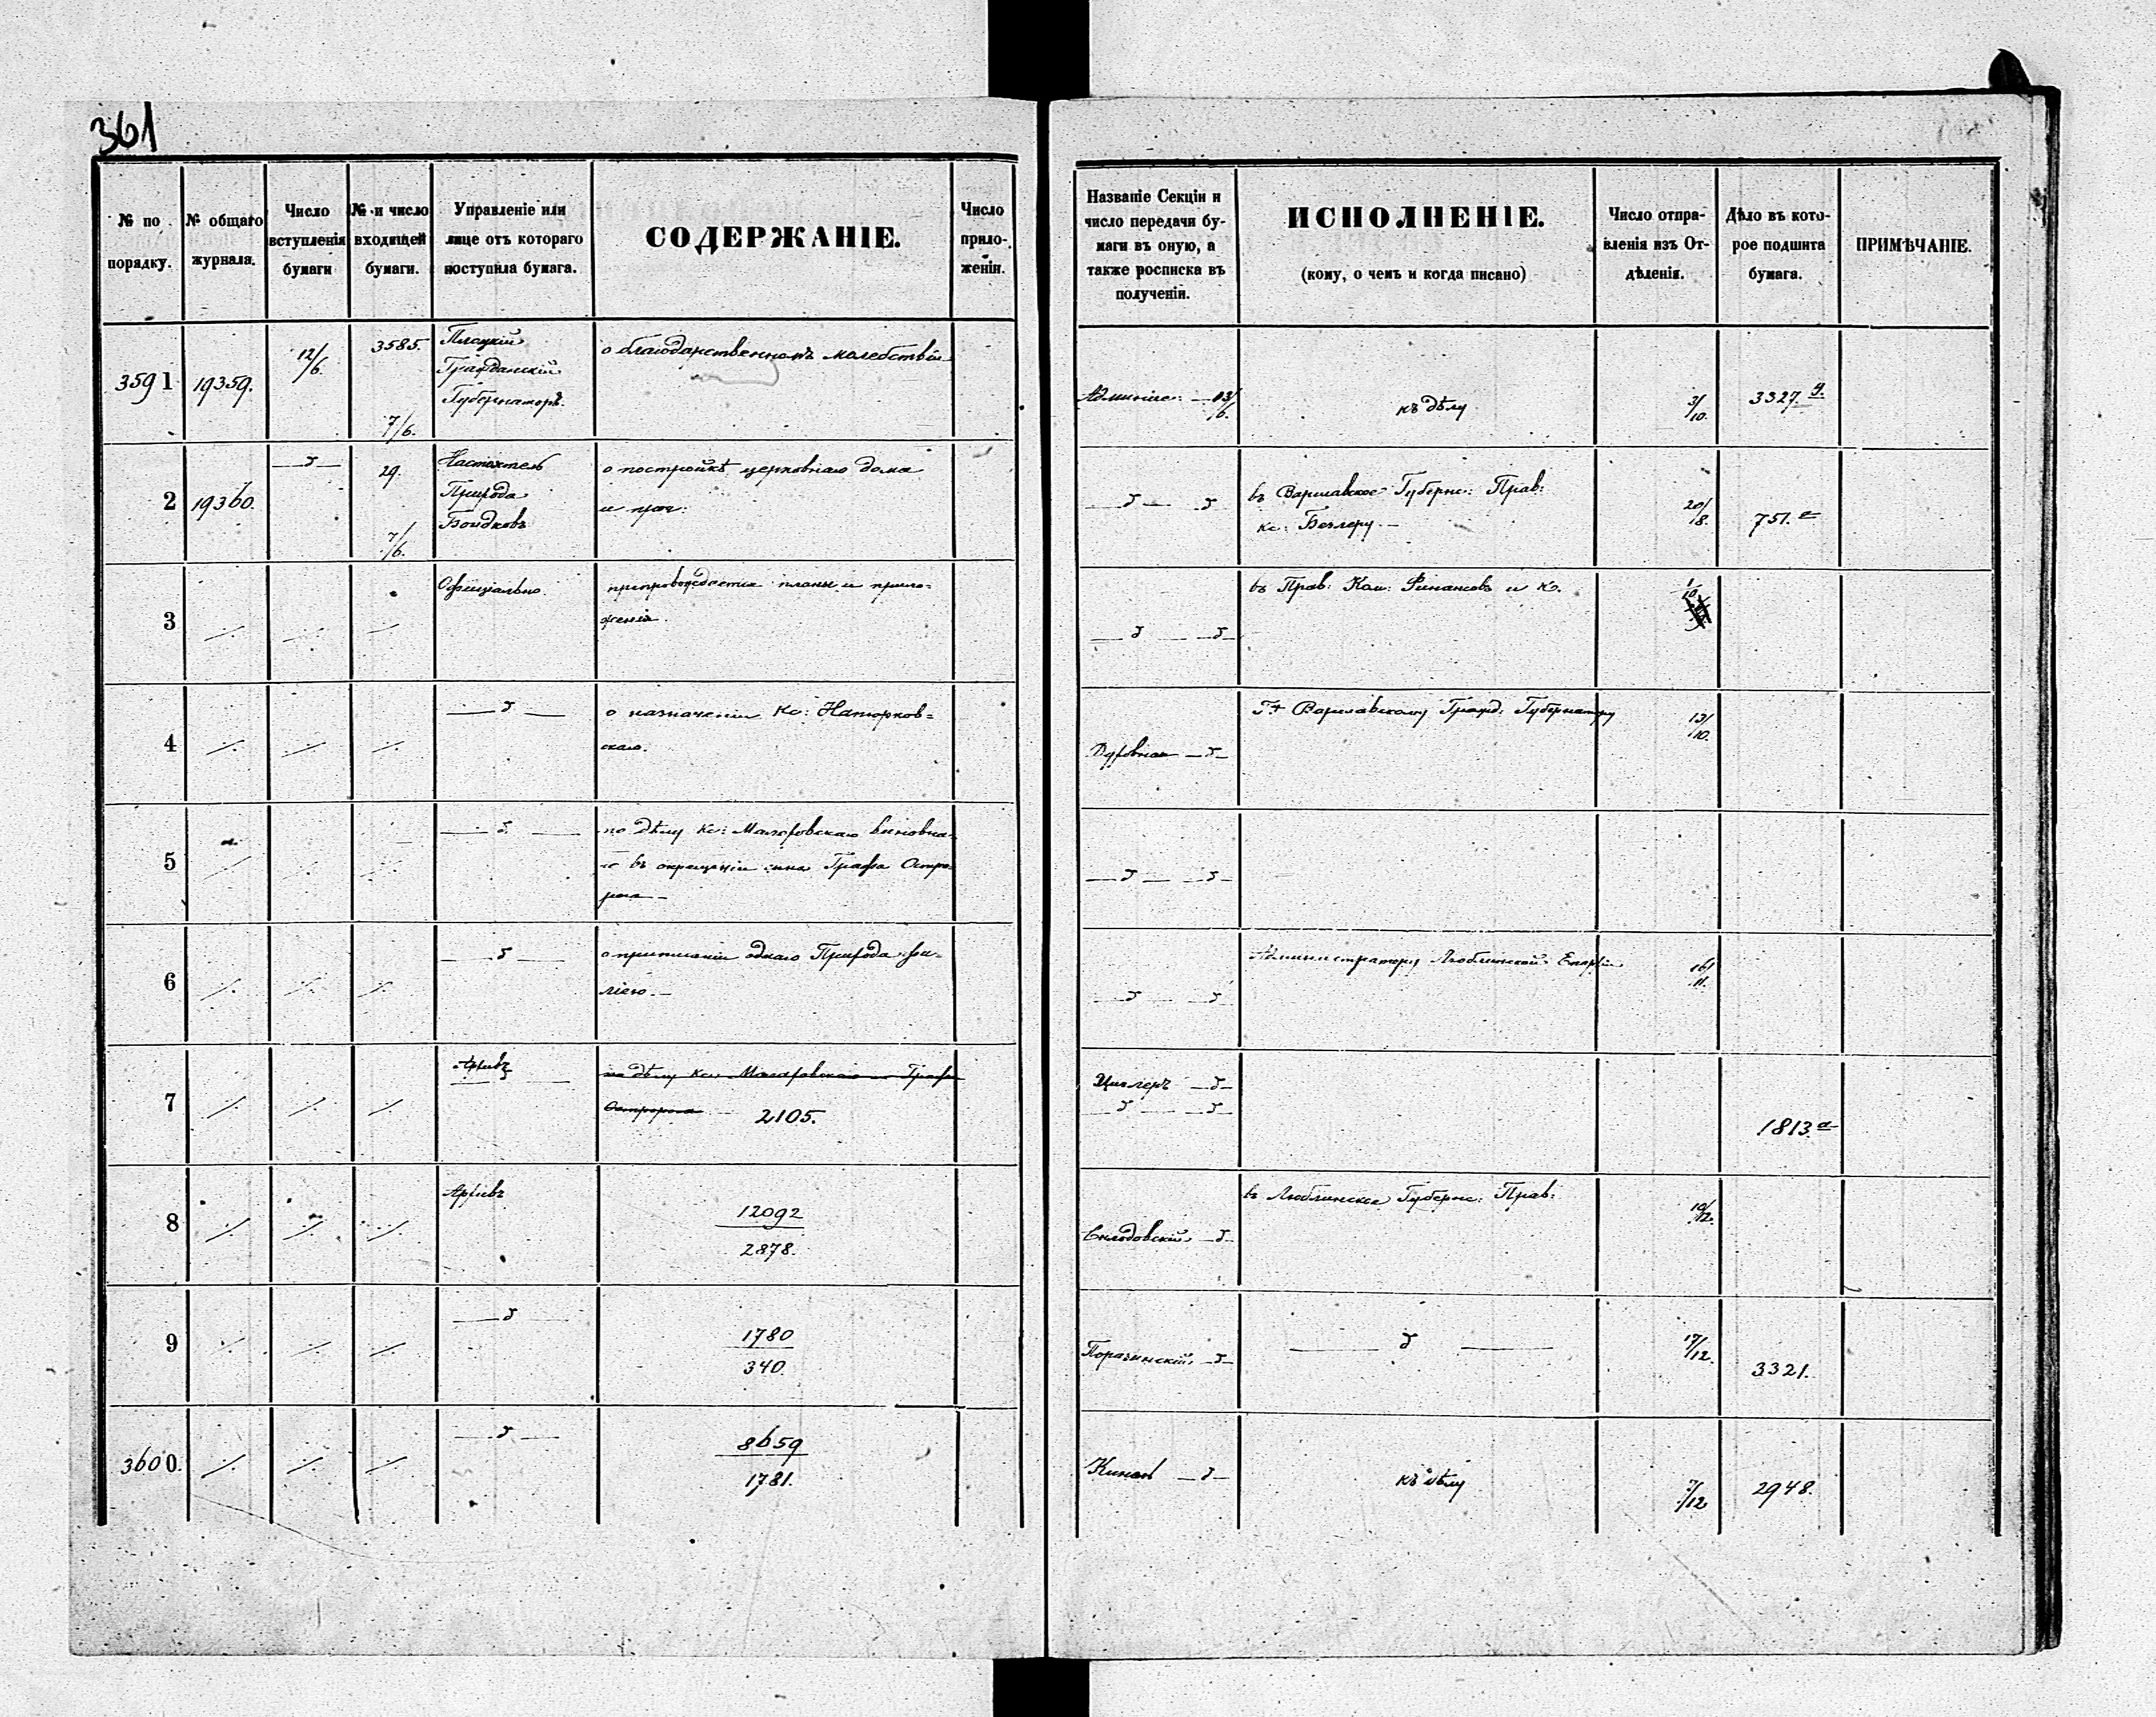 361
№ по порядку.
№ общаго журнала.
Число вступленія бумаги
№ и число входящей бумаги.
Управленіе или лице отъ котораго поступила бумага.
СОДЕРЖАНІЕ.
Число приложеній.
Названіе Секціи и число передачи бумаги въ оную, а также росписка въ полученіи.
ИСПОЛНЕНІЕ.
(кому, о чемъ и когда писано)
Число отправленія изъ Отдѣленія.
Дѣло въ которое подшита бумага.
ПРИМѢЧАНІЕ.
3591 19359. 12/6. 3585. 7/6.
Плоцкій
Гражданскій
Губернаторъ.
о благодарственномъ молебствіи
13/6. къ дѣлу 3/10. 3327.
2 19360. 29. 7/6.
Настоятель
Прихода
о постройкѣ церковнаго дома
и проч:
въ Варшавское Губернс: Прав:
кс: 20/8. 751.
3
Офиціально.
препровождается планы и прило-
женія.
въ Прав: Ком: Финансовъ и К. 1/10
4
о назначеніи Кс:
скаго.
Варшавскому Гражд: Губернатору 13/10.
5
по дѣлу Кс:
въ окрещеніи сына Графа Остро-
рога
6
о приписаніи однаго Прихода фи-
ліею.
Администратору Люблинской Епархіи 16/11.
7
Архивъ
по дѣлу Кс: Графа
Остророга 2105.
1813.
8
Архивъ
12092
2878.
Склодовскій
въ Люблинское Губернс: Прав: 10/12.
9
1780
340.
17/12. 3321.
3600.
8659
1781.
къ дѣлу 7/12 2948.